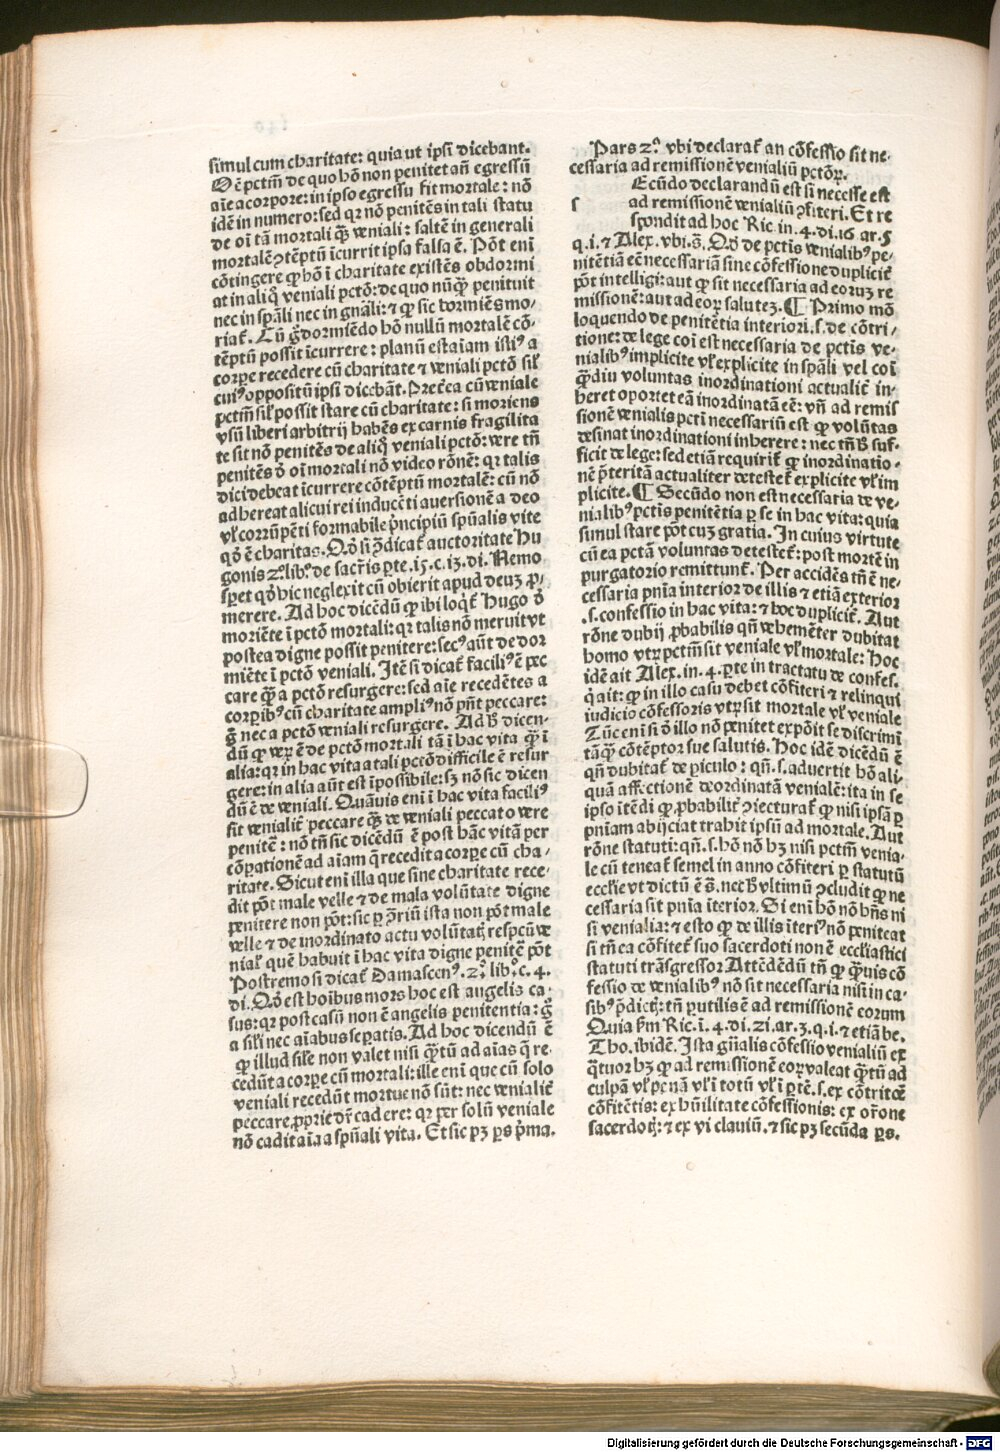 simul cum charitate: quia ut ipsi dicebant.
Oē pctm̄ de quo hō non penitet an̄ egressū
aīe a corpore: in ipso egressu fit mortale: nō
idē in numero: sed qꝛ nō penitēs in tali statu
de oī tā mortali ꝙ̄ veniali: saltē in generali
mortalē ꝯtēptū īcurrit ipsa falsa ē. Pōt eni
cōtingere ꝙ hō ī charitate existēs obdormi
at in aliqͦ veniali pctō: de quo nūꝙ̄ penituit
nec in spāli nec in gnāli: ⁊ ꝙ sic dormiēs mo⸗
riat̄. Cū ḡ dormiēdo hō nullū mortalē cō⸗
tēptū possit īcurrere: planū est aīam istiꝰ a
corꝑe recedere cū charitate ⁊ veniali pctō sil̄
cuiꝰ oppositū ipsi dicebāt. Pret̄ea cū veniale
pctm̄ sil̄ possit stare cū charitate: si moriens
vsū liberi arbitrij habēs ex carnis fragilita
te sit nō penitēs de aliqͦ veniali pctō: vere tn̄
penitēs d̄ oī mortali nō video rōnē: qꝛ talis
dici debeat īcurrere cōtēptū mortalē: cū nō
adhereat alicui rei inducēti auersionē a deo
vl̄ corrūpēti formabile pͥncipiū spūalis vite
qd̄ ē charitas. Qd̄ si ꝯ̄dicat̄ auctoritate Hu
gonis 2ͦ libͦ de sacr̄is ꝑte .15. c. 13. di. Nemo
sꝑet qd̄ hic neglexit cū obierit apud deuꝫ ꝓ⸗
merere. Ad hoc dicēdū ꝙ ibi loqͥt̄ Hugo d̄
moriēte ī pctō mortali: qꝛ talis nō meruit vt
postea digne possit penitere: secꝰ aūt de dor
miēte ī pctō veniali. Itē si dicat̄ faciliꝰ ē pec
care ꝙ̄ a pctō resurgere: sed aīe recedētes a
corꝑibꝰ cū charitate ampliꝰ nō pn̄t peccare:
ḡ nec a pctō veniali resurgere. Ad h̄ dicen⸗
dū ꝙ veꝝ ē de pctō mortali tā ī hac vita ꝙ̄ ī
alia: qꝛ in hac vita a tali pctō difficile ē resur
gere: in alia aūt est īpossibile: sꝫ nō sic dicen
dū ē de veniali. Quāuis eni ī hac vita faciliꝰ
sit venialit̄ peccare ꝙ̄ de veniali peccato vere
penitē̄: nō tn̄ sic dicēdū ē post hāc vitā per
cōꝑationē ad aīam q̄ recedit a corꝑe cū cha⸗
ritate. Sicut eni illa que sine charitate rece⸗
dit pōt male velle ⁊ de mala volūtate digne
penitere non pōt: sic ꝑ ꝯ̄riū ista non pōt male
velle ⁊ de inordinato actu volūtatꝭ respcū ve
nial̄ quē habuit ī hac vita digne penitē̄ pōt
Postremo si dicat̄ Damascenꝰ. 2ͦ. libͦ. c. 4.
di. Qd̄ est hoībus mors hoc est angelis ca⸗
sus: qꝛ post casū non ē angelis penitentia: ḡ
a sil̄i nec aīabus seꝑatis. Ad hoc dicendū ē
ꝙ illud sil̄e non valet nisi ꝙ̄tū ad aīas q̄ re⸗
cedūt a corꝑe cū mortali: ille eni que cū solo
veniali recedūt mortue nō sūt: nec venialit̄
peccare ꝓprie dr̄ cadere: qꝛ per solū veniale
nō cadit aīa a spūali vita. Et sic pꝫ ꝑs pͥma.
Pars 2ͣ. vbi declarat̄ an cōfessio sit ne⸗
cessaria ad remissionē venialiū pctōꝝ.
Ecūdo declarandū est si necesse est
s ad remissionē venialiū ꝯfiteri. Et re
spondit ad hoc Ric. in. 4. di. 16 ar. 5
q. i. ⁊ Alex. vbi. s̄. Qd̄ de pctis venialibꝰ pe⸗
nitētiā eē necessariā sine cōfessione duplicit̄
pōt intelligi: aut ꝙ sit necessaria ad eoruꝫ re
missionē: aut ad eoꝝ salutē. ¶ Primo mō
loquendo de penitētia interiori. s. de cōtri⸗
tione: de lege coī est necessaria de pctis ve⸗
nialibꝰ implicite vl̄ explicite in spāli vel coī
ꝙ̄diu voluntas inordinationi actualit̄ in⸗
heret oportet eā inordinatā eē: vn̄ ad remis
sionē venialis pcti necessariū est ꝙ volūtas
desinat inordinationi inherere: nec tn̄ h̄ suf⸗
ficit de lege: sed etiā requirit̄ ꝙ inordinatio⸗
nē pͥteritā actualiter detestet̄ explicite vl̄ im
plicite. ¶ Secūdo non est necessaria de ve⸗
nialibꝰ pctis penitētia ꝑ se in hac vita: quia
simul stare pōt cuꝫ gratia. In cuius virtute
cū ea pctā voluntas detestet̄: post mortē in
purgatorio remittunt̄. Per accidēs tn̄ ē ne⸗
cessaria pnīa interior de illis ⁊ etiā exterior
.s. confessio in hac vita: ⁊ hoc duplicit̄. Aut
rōne dubij ꝓbabilis qn̄ vehemēter dubitat
homo vtꝝ pctm̄ sit veniale vl̄ mortale: Hoc
idē ait Alex. in. 4. ꝑte in tractatu de confes.
qͥ ait: ꝙ in illo casu debet cōfiteri ⁊ relinqui
iudicio cōfessoris vtꝝ sit mortale vl̄ veniale
Tūc eni si d̄ illo nō penitet expōit se discrimī
tāꝙ̄ cōtēptor sue salutis. Hoc idē dicēdū ē
qn̄ dubitat̄ de periculo: qn̄. s. aduertit hō ali⸗
quā affectionē deordinatā venialē: ita in se
ipso itēdi ꝙ ꝓbabilit̄ ꝯiecturat̄ ꝙ nisi ipsā ꝑ
pnīam abijciat trahit ipsū ad mortale. Aut
rōne statuti: qn̄. s. hō nō hꝫ nisi pctm̄ venia⸗
le cū teneat̄ semel in anno cōfiteri ꝑ statutū
eccl̄ie vt dictū ē s̄. nec h̄ vltimū ꝯcludit ꝙ ne
cessaria sit pnīa īterior. Si eni hō nō hn̄s ni
si venialia: ⁊ esto ꝙ de illis īteriꝰ nō peniteat
si tn̄ ea cōfitet̄ suo sacerdoti non ē eccl̄iastici
statuti trāsgressor. Attēdēdū tn̄ ꝙ ꝙ̄uis cō
fessio de venialibꝰ nō sit necessaria nisi in ca⸗
sibꝰ pͥdictꝭ: tn̄ ꝑutilis ē ad remissionē eorum
Quia ẜm Ric. ī. 4. di. 21. ar. 3. q. i. ⁊ etiā be.
Tho. ibidē. Ista gn̄alis cōfessio venialiū ex
q̄tuor hꝫ ꝙ ad remissionē eoꝝ valeat ꝙ̄tū ad
culpā vl̄ penā vl̄ ī totū vl̄ ī ꝑtē. s. ex cōtritōe
cōfitētis: ex hūilitate cōfessionis: ex or̄one
sacerdotꝭ: ⁊ ex vi clauiū. ⁊ sic pꝫ secūda ꝑs.
Digitalisierung gefördert durch die Deutsche Forschungsgemeinschaft - DFG